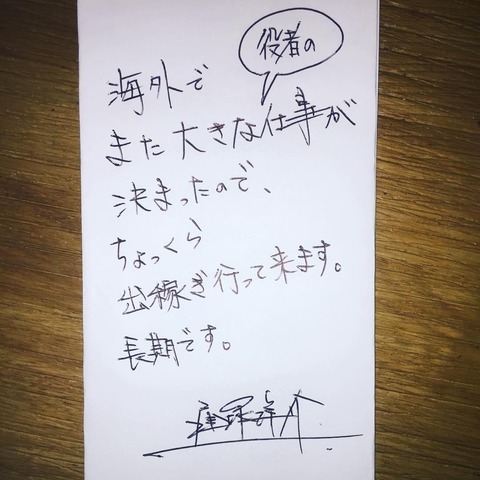 海外で
役者の
また大きな仕事が
決まったので、
ちょっくら
出稼ぎ行って来ます。
長期です。
窪塚洋介